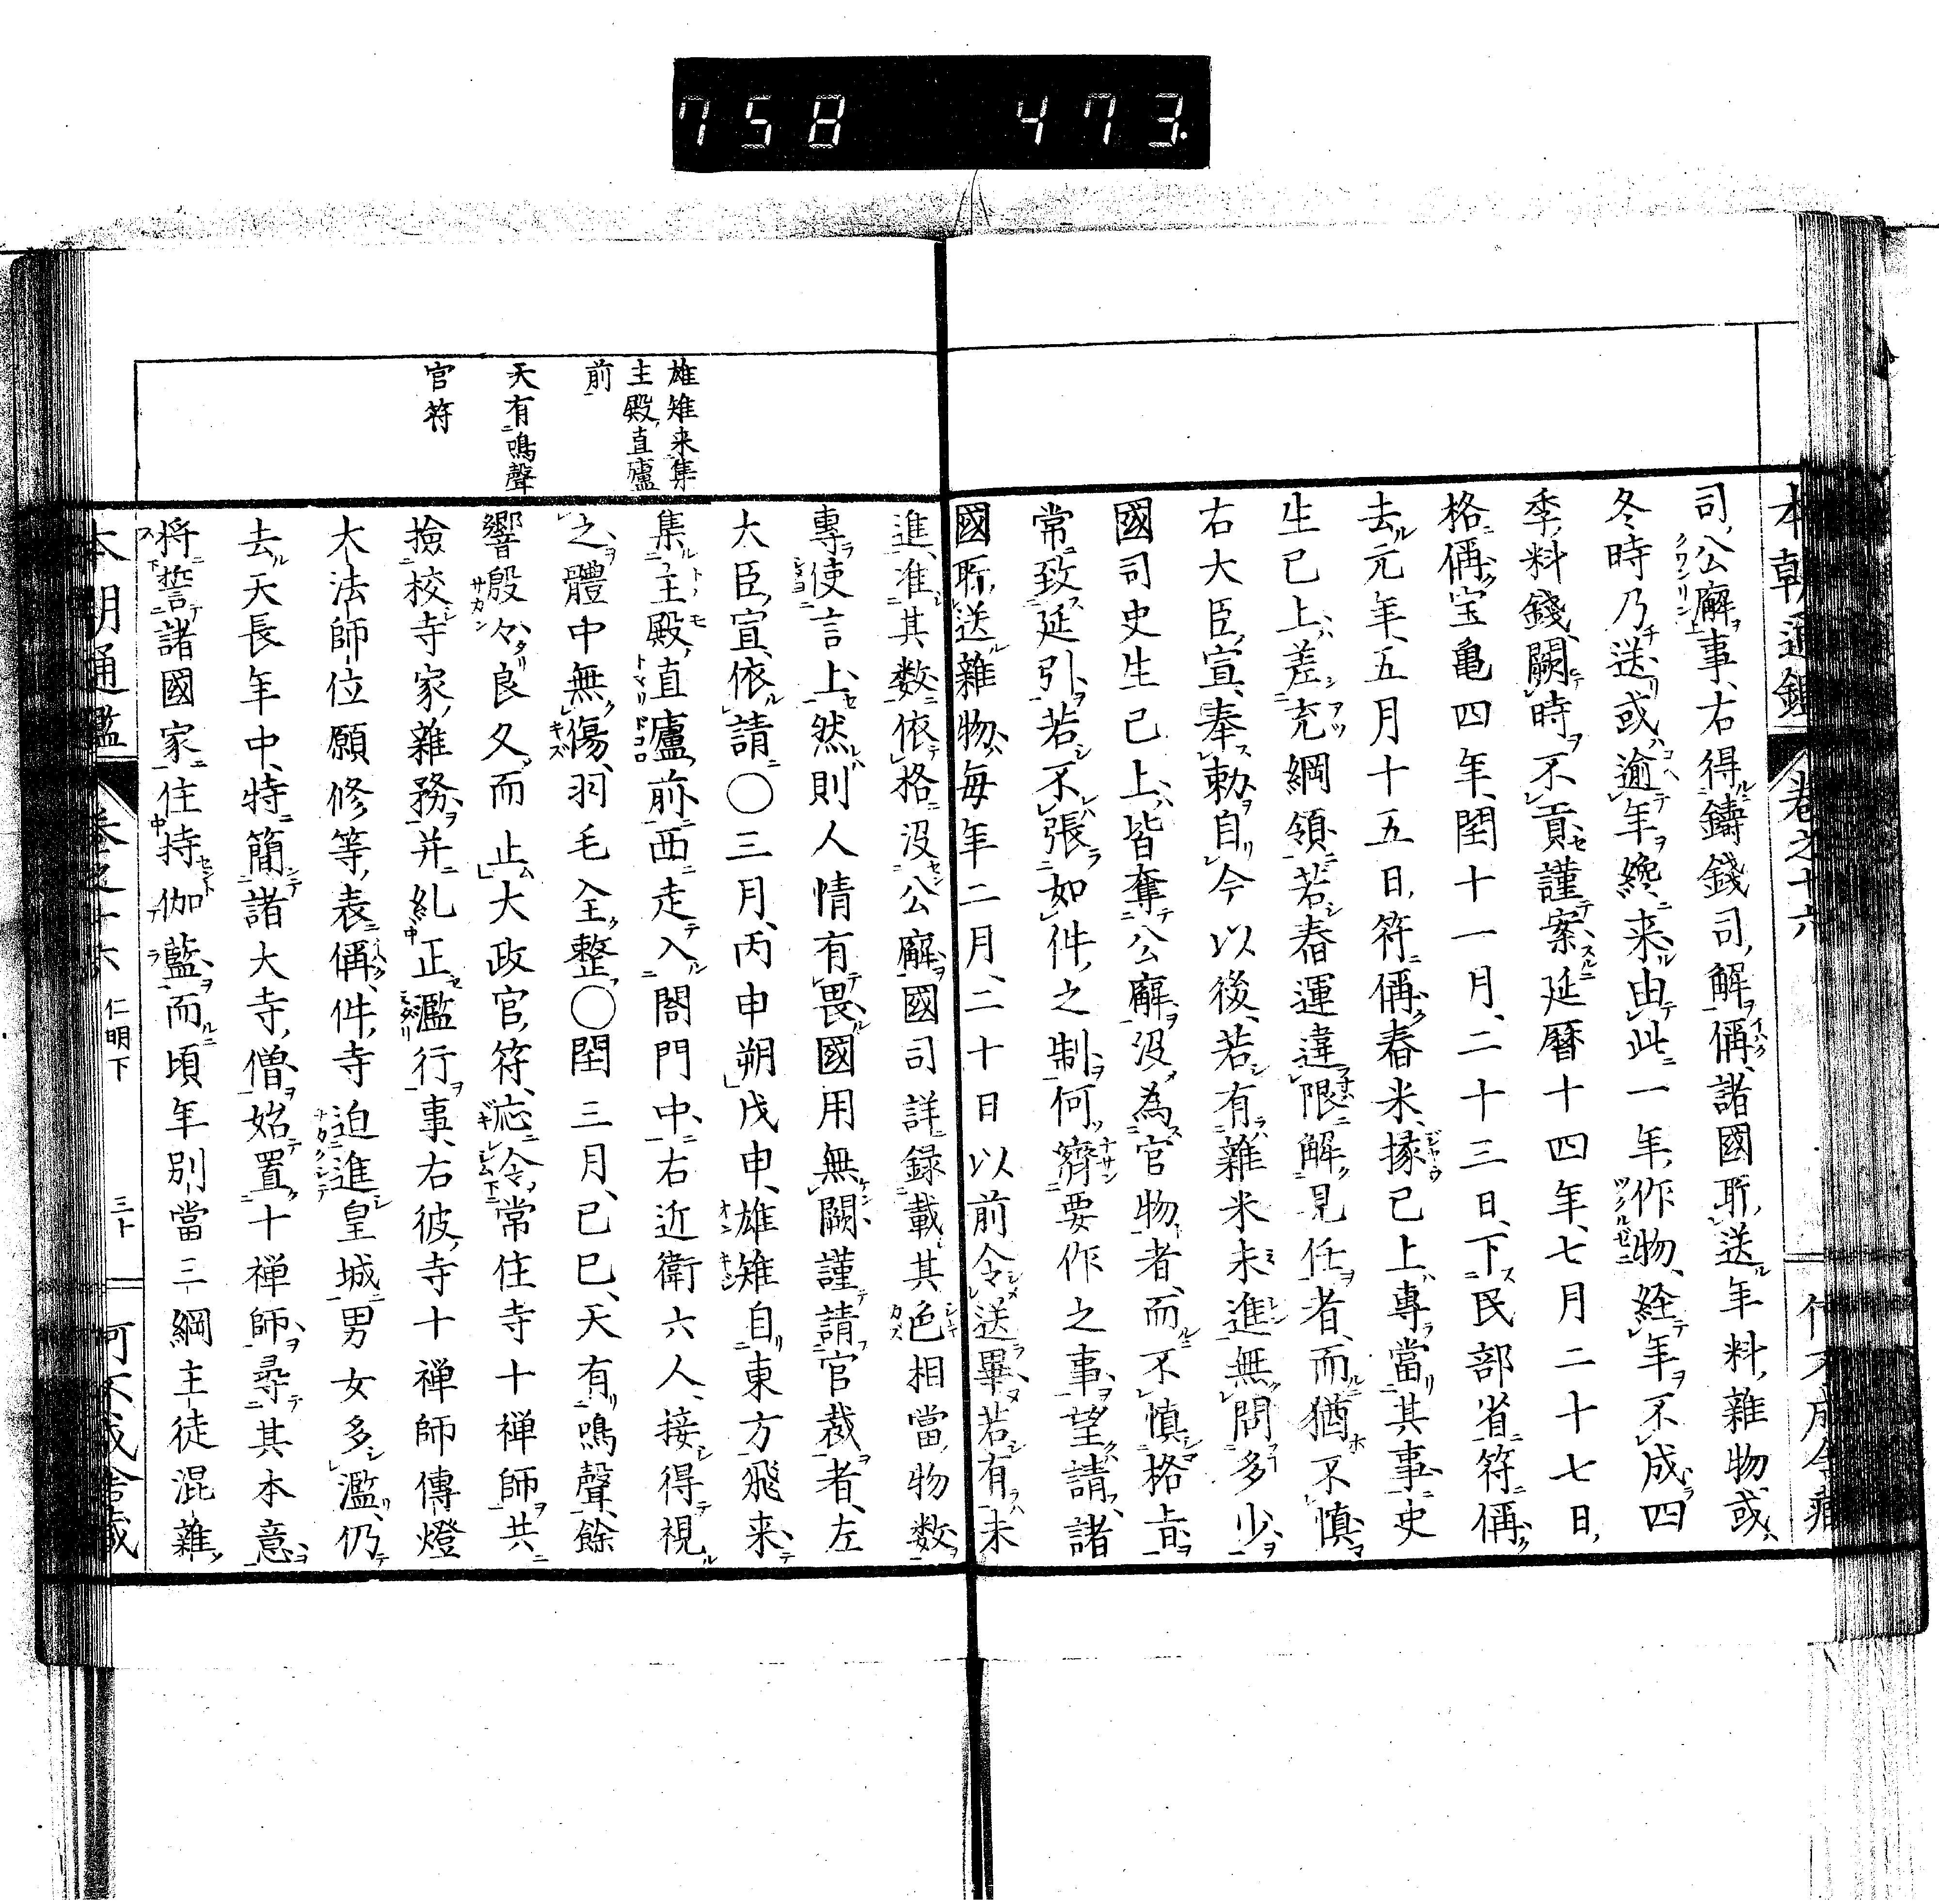 758 473.
本朝通鑑 卷之十六
司公廨事、右得鑄錢司解偁、諸國所送年料雜物、或
冬時乃送、或逾年纔来、由此一年作物、経年不成、四
季料錢、闕時不貢、謹案延暦十四年、七月二十七日、
格偁、宝亀四年、閏十一月、二十三日、下民部省符偁、
去元年、五月十五日、符偁、舂米、掾已上、專當其事、史
生已上、差充綱領、若舂運違限、解見任者、而猶不慎、
右大臣宣、奉勅、自今以後、若有雜米未進、無問多少、
國司史生已上、皆奪公廨、没為官物者、而不慎格旨、
常致延引、若不張如件之制、何濟要作之事、望請、諸
國所送雜物、毎年二月、二十日以前、令送畢、若有未
進、准其数、依格没公廨、國司詳録載其色相當物数、
專使言上、然則人情有畏、國用無闕、謹請官裁者、左
大臣宣、依請、〇三月、丙申朔、戊申、雄雉自東方飛来、
集主殿直廬前、西走入閤門中、右近衛六人、接得視
之、體中無傷、羽毛全整、〇閏三月、己巳、天有鳴聲、餘
響殷々、良久而止、大政官符、応令常住寺十禅師、共
撿校寺家雜務、并糺正濫行事、右彼寺十禅師傳燈
大法師位願修等表偁、件寺迫進皇城、男女多濫、仍
去天長年中、特簡諸大寺僧、始置十禅師、尋其本意、
将誓諸國家、住持伽藍、而頃年別當三綱主徒混雜、
雄雉来集
主殿直廬
前
天有鳴聲
官符
本朝通鑑 卷之十六 仁明下